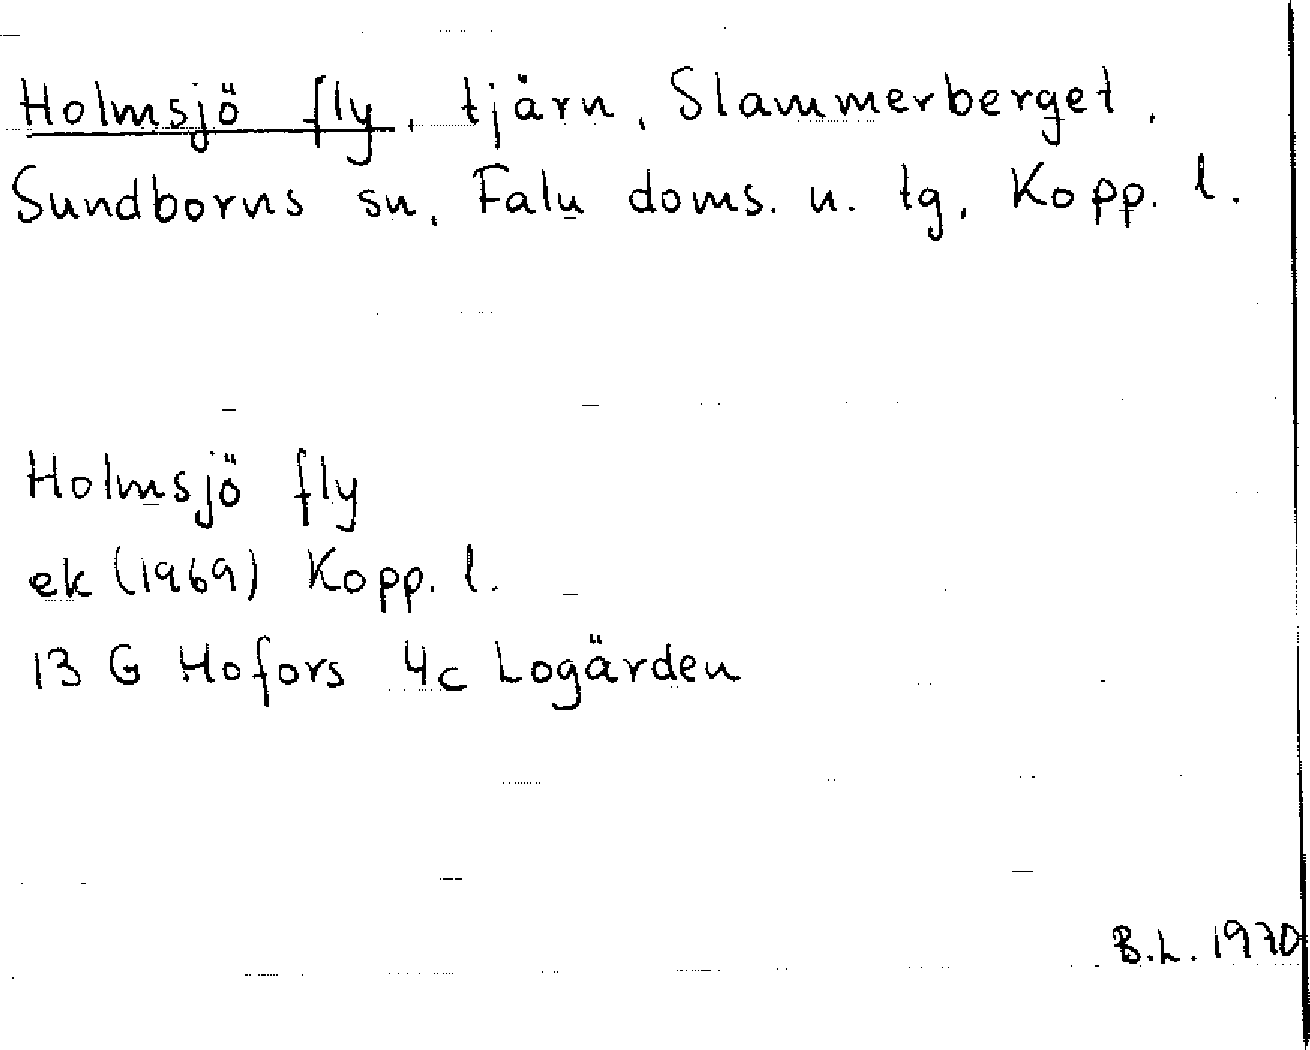 Holmsjö fly, tjärn, Slammerberget,
Sundborns sn, Falu doms. n. tg, Kopp. l.
Holmsjö fly
ek (1969) Kopp. l.
13 G Hofors 4c Logärden
B.L. 1970